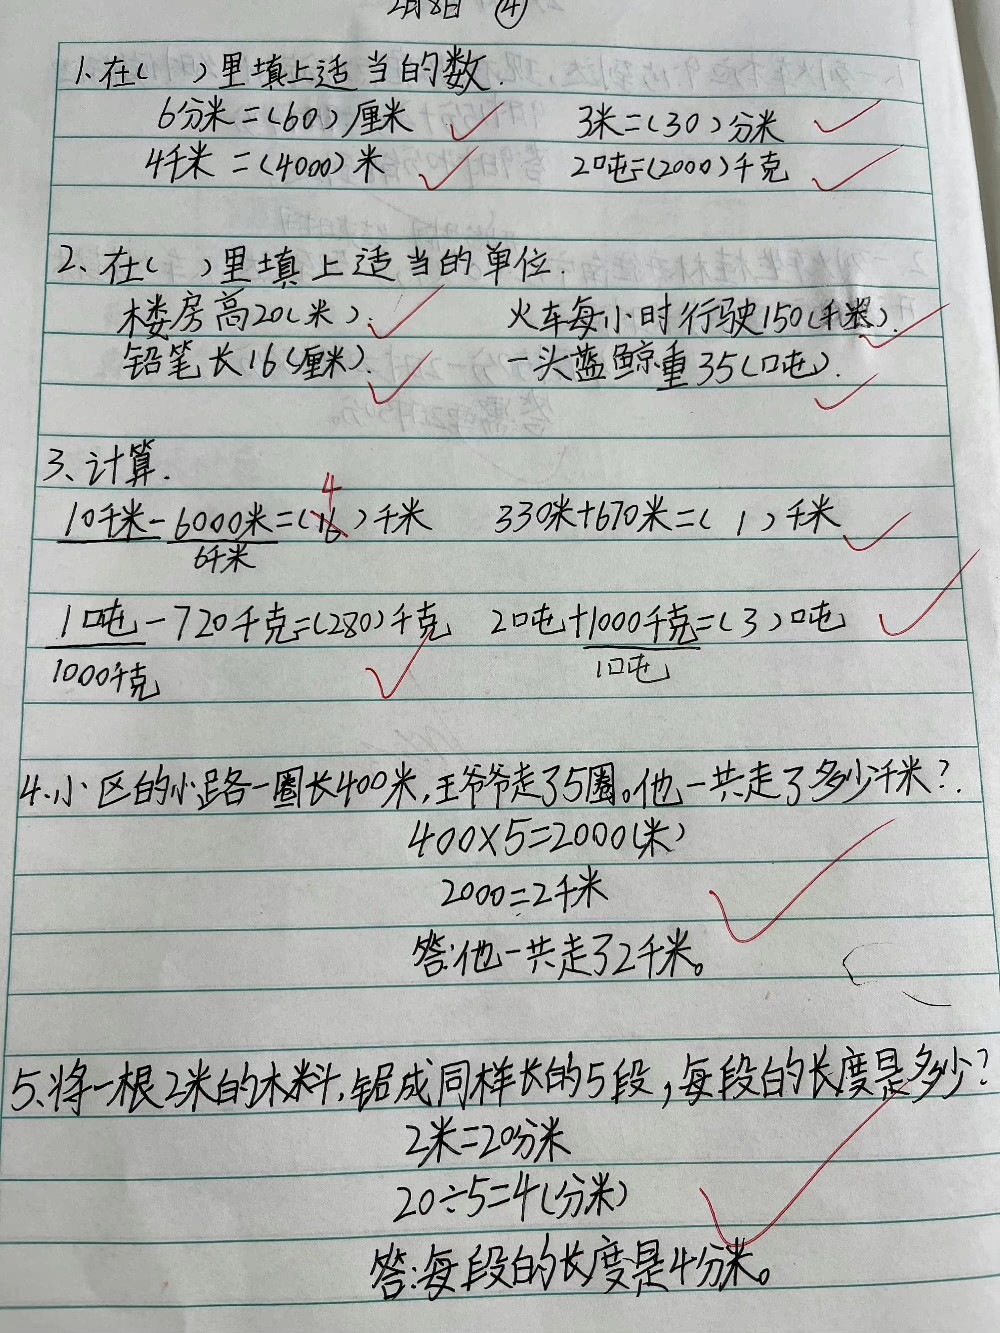 2月8日 ④
1、在( )里填上适当的数.
6分米=(60)厘米 3米=(30)分米
4千米=(4000)米 2吨=(2000)千克
2、在( )里填上适当的单位.
楼房高20(米). 火车每小时行驶150(千米).
铅笔长16(厘米). 一头蓝鲸重35(吨).
3、计算.
4
10千米-6000米=(16)千米 330米+670米=( 1 )千米
6千米
1吨-720千克=(280)千克 2吨+1000千克=(3)吨
1000千克 1吨
4、小区的小路一圈长400米,王爷爷走了5圈。他一共走了多少千米?
400×5=2000(米)
2000=2千米
答:他一共走了2千米。
5、将一根2米的木料,锯成同样长的5段,每段的长度是多少?
2米=20分米
20÷5=4(分米)
答:每段的长度是4分米。